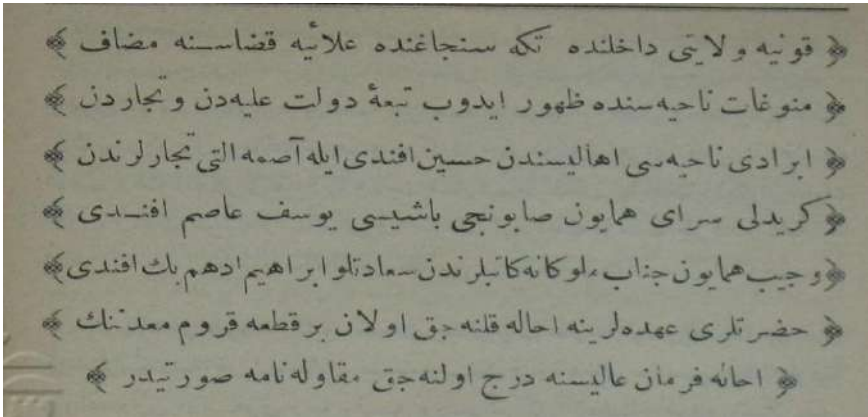 ﴿ قونیه ولایتی داخلنده تکه سنجاغنده علائیه قضاسنه مضاف ﴾
﴿ منوغات ناحیه‌سنده ظهور ایدوب تبعهٔ دولت علیه‌دن و تجاردن ﴾
﴿ ابرادی ناحیه‌سی اهالیسندن حسین افندی ایله آصمه التی تجارلرندن ﴾
﴿ کریدلی سرای همایون صابونجی باشیسی یوسف عاصم افندی ﴾
﴿ وجیب همایون جناب ملوکانه کاتبلرندن سعادتلو ابراهیم ادهم بك افندی ﴾
﴿ حضرتلری عهده‌لرینه احاله قلنه‌جق اولان بر قطعه قروم معدننك ﴾
﴿ احاله فرمان عالیسنه درج اولنه‌جق مقاوله‌نامه صورتیدر ﴾